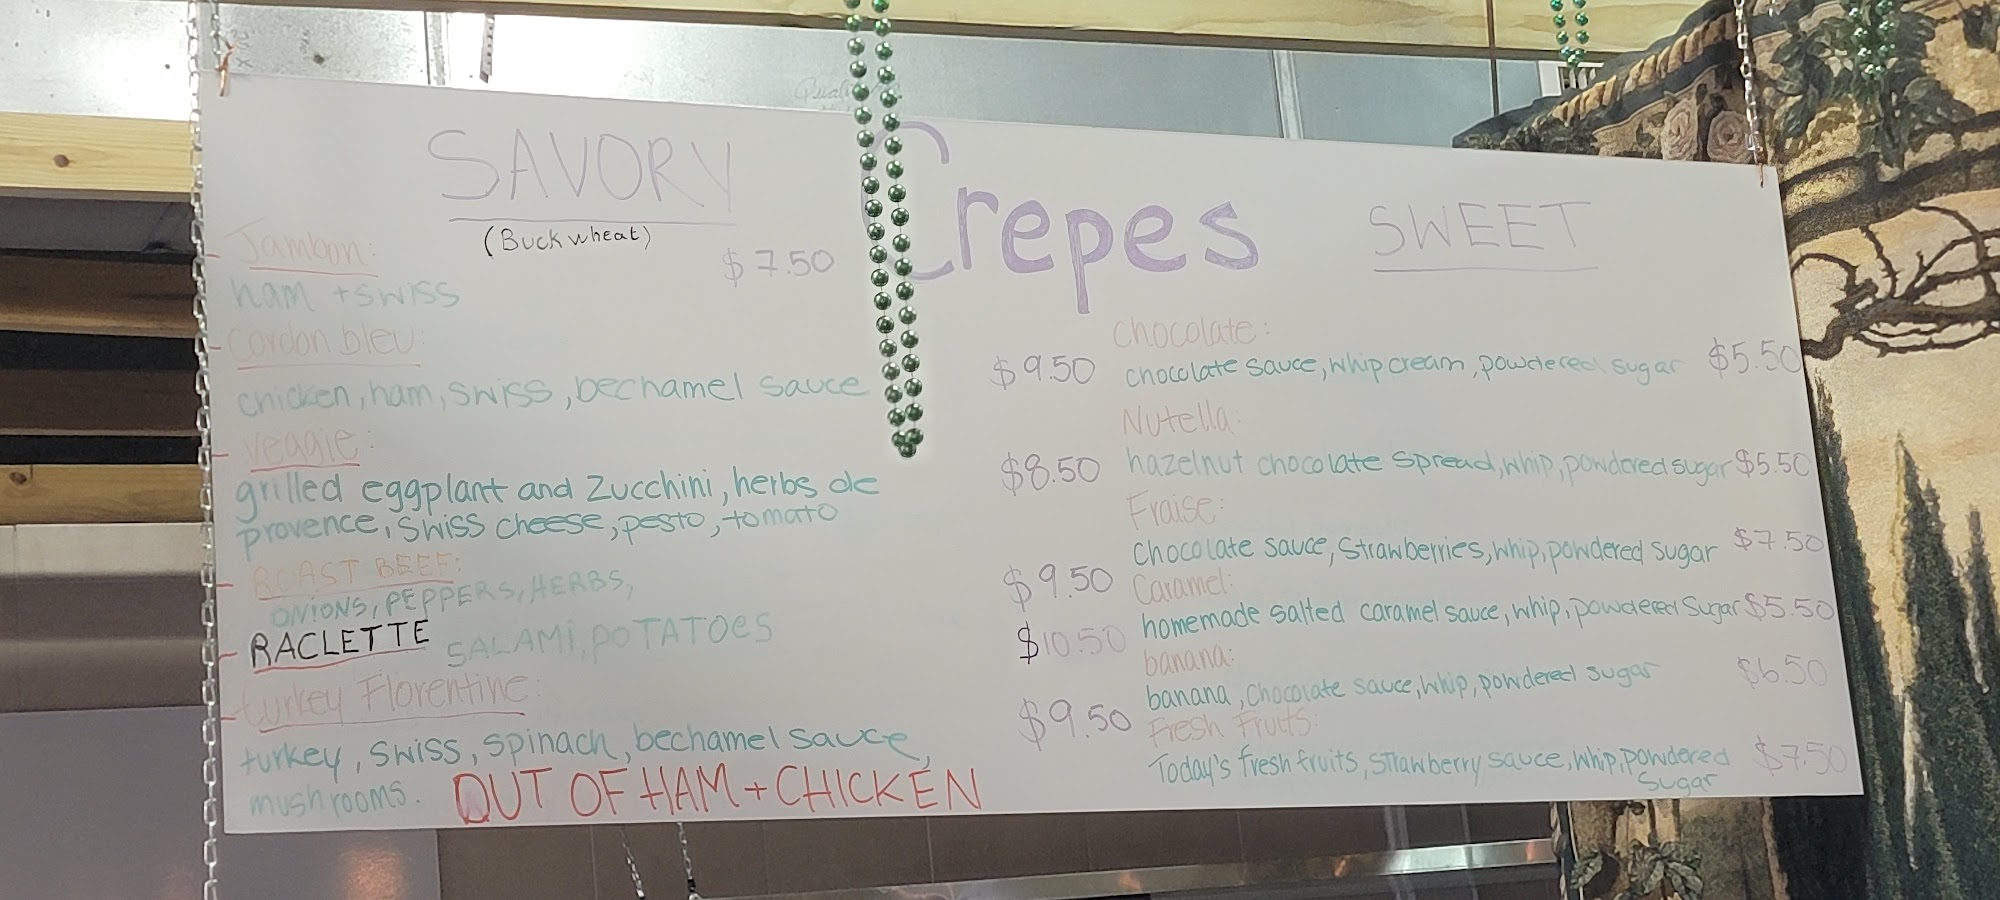 Crepes
SAVORY
(Buckwheat)
Jambon: $7.50
ham + swiss
cordon bleu:
chicken, ham, swiss, bechamel sauce $9.50
veggie:
grilled eggplant and zucchini, herbs de $8.50
provence, swiss cheese, pesto, tomato
ROAST BEEF: $9.50
ONIONS, PEPPERS, HERBS,
RACLETTE SALAMI, POTATOES $10.50
turkey Florentine:
turkey, swiss, spinach, bechamel sauce, $9.50
mushrooms. OUT OF HAM + CHICKEN
SWEET
chocolate:
chocolate sauce, whip cream, powdered sugar $5.50
Nutella:
hazelnut chocolate spread, whip, powdered sugar $5.50
Fraise:
chocolate sauce, strawberries, whip, powdered sugar $7.50
Caramel:
homemade salted caramel sauce, whip, powdered sugar $5.50
banana:
banana, chocolate sauce, whip, powdered sugar $6.50
Fresh Fruits:
Today's fresh fruits, strawberry sauce, whip, powdered $7.50
sugar